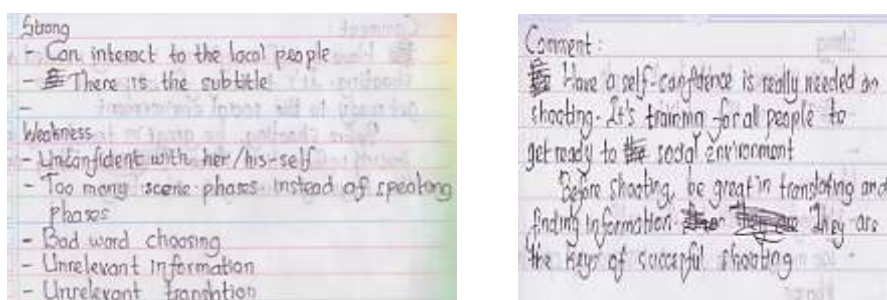 Strong
- Can interact to the local people
- There is the subtitle
-
Weakness
- Unconfident with her/his-self
- Too many scene phases instead of speaking
phases
- Bad word choosing
- Unrelevant information
- Unrelevant translation
Comment :
Have a self-confidence is really needed on
shooting. It's training for all people to
get ready to the social environment
Before shooting, be great in translating and
finding information. They are
the keys of succesful shooting